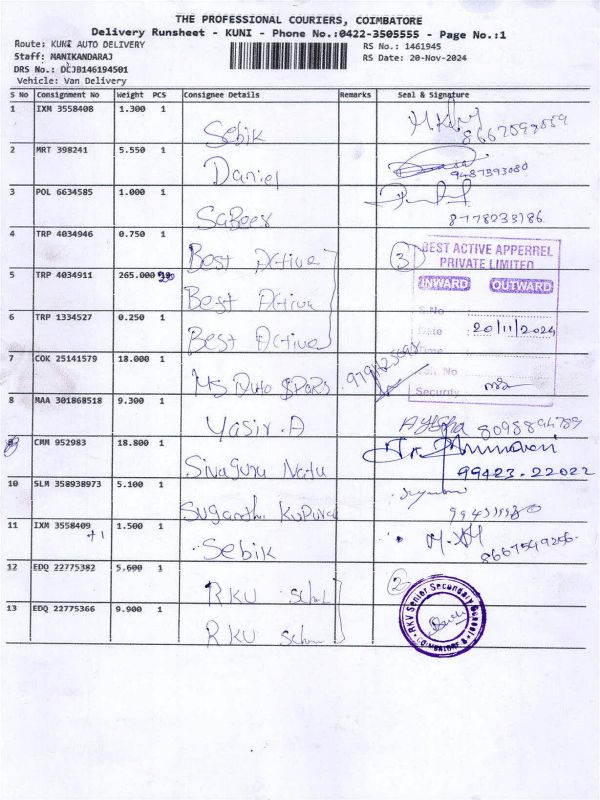 THE PROFESSIONAL COURIERS, COIMBATORE
Delivery Runsheet - KUNI - Phone No.:0422-3505555 - Page No.:1
Route: KUNI AUTO DELIVERY
RS No.: 1461945
Staff: MANIKANDARAJ
RS Date: 20-Nov-2024
DRS No.: DCJB146194501
Vehicle: Van Delivery
S No Consignment No Weight PCS Consignee Details Remarks Seal & Signature
1 IXM 3558408 1.300 1 Sebik
2 MRT 398241 5.550 1 Daniel 9487393080
3 POL 6634585 1.000 1 Sabeer 8778233186
4 TRP 4034946 0.750 1 Best Active 3
5 TRP 4034911 265.000 Best Active
6 TRP 1334527 0.250 1 Best Active
BEST ACTIVE APPERREL
PRIVATE LIMITED
INWARD OUTWARD
S.No
Date 20/11/2024
Time
Security
7 COK 25141579 18.000 1
8 MAA 301868518 9.300 1 Yasir.A
9 CMM 952983 18.800 1 99423-22022
10 SLM 358938973 5.100 1
11 IXM 3558409 1.500 1 Sebik
+1
12 EDQ 22775382 5.600 1 2
13 EDQ 22775366 9.900 1
RKV Senior Secondary
COIMBATORE